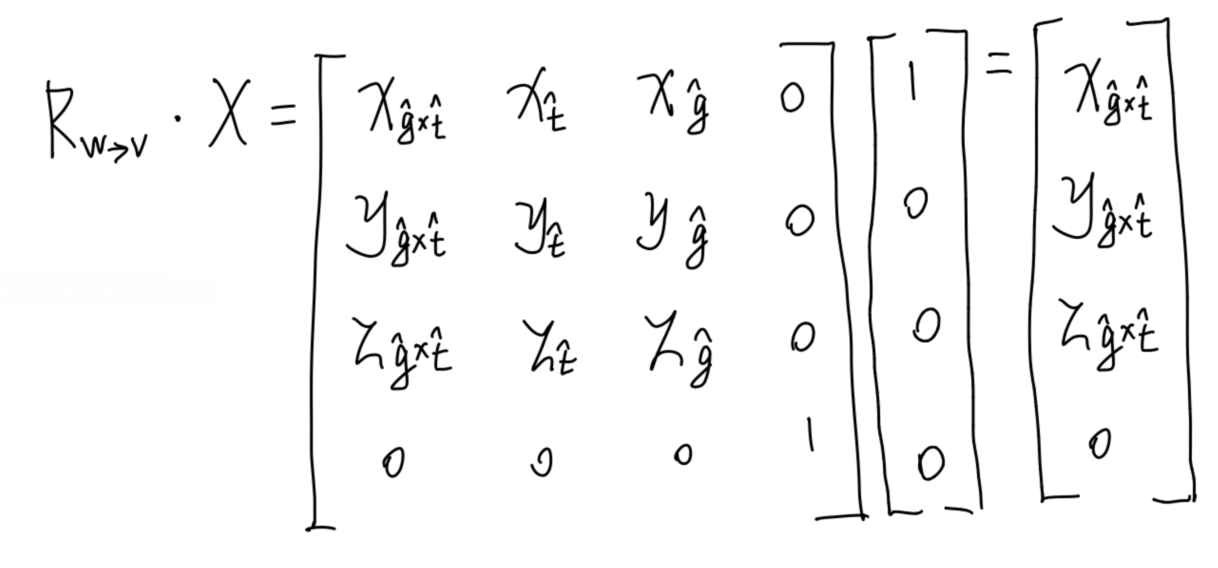 $R_{w \to v} \cdot X = \begin{bmatrix} x_{\hat{g} \times \hat{t}} & x_{\hat{t}} & x_{\hat{g}} & 0 \\ y_{\hat{g} \times \hat{t}} & y_{\hat{t}} & y_{\hat{g}} & 0 \\ z_{\hat{g} \times \hat{t}} & z_{\hat{t}} & z_{\hat{g}} & 0 \\ 0 & 0 & 0 & 1 \end{bmatrix} \begin{bmatrix} 1 \\ 0 \\ 0 \\ 0 \end{bmatrix} = \begin{bmatrix} x_{\hat{g} \times \hat{t}} \\ y_{\hat{g} \times \hat{t}} \\ z_{\hat{g} \times \hat{t}} \\ 0 \end{bmatrix}$